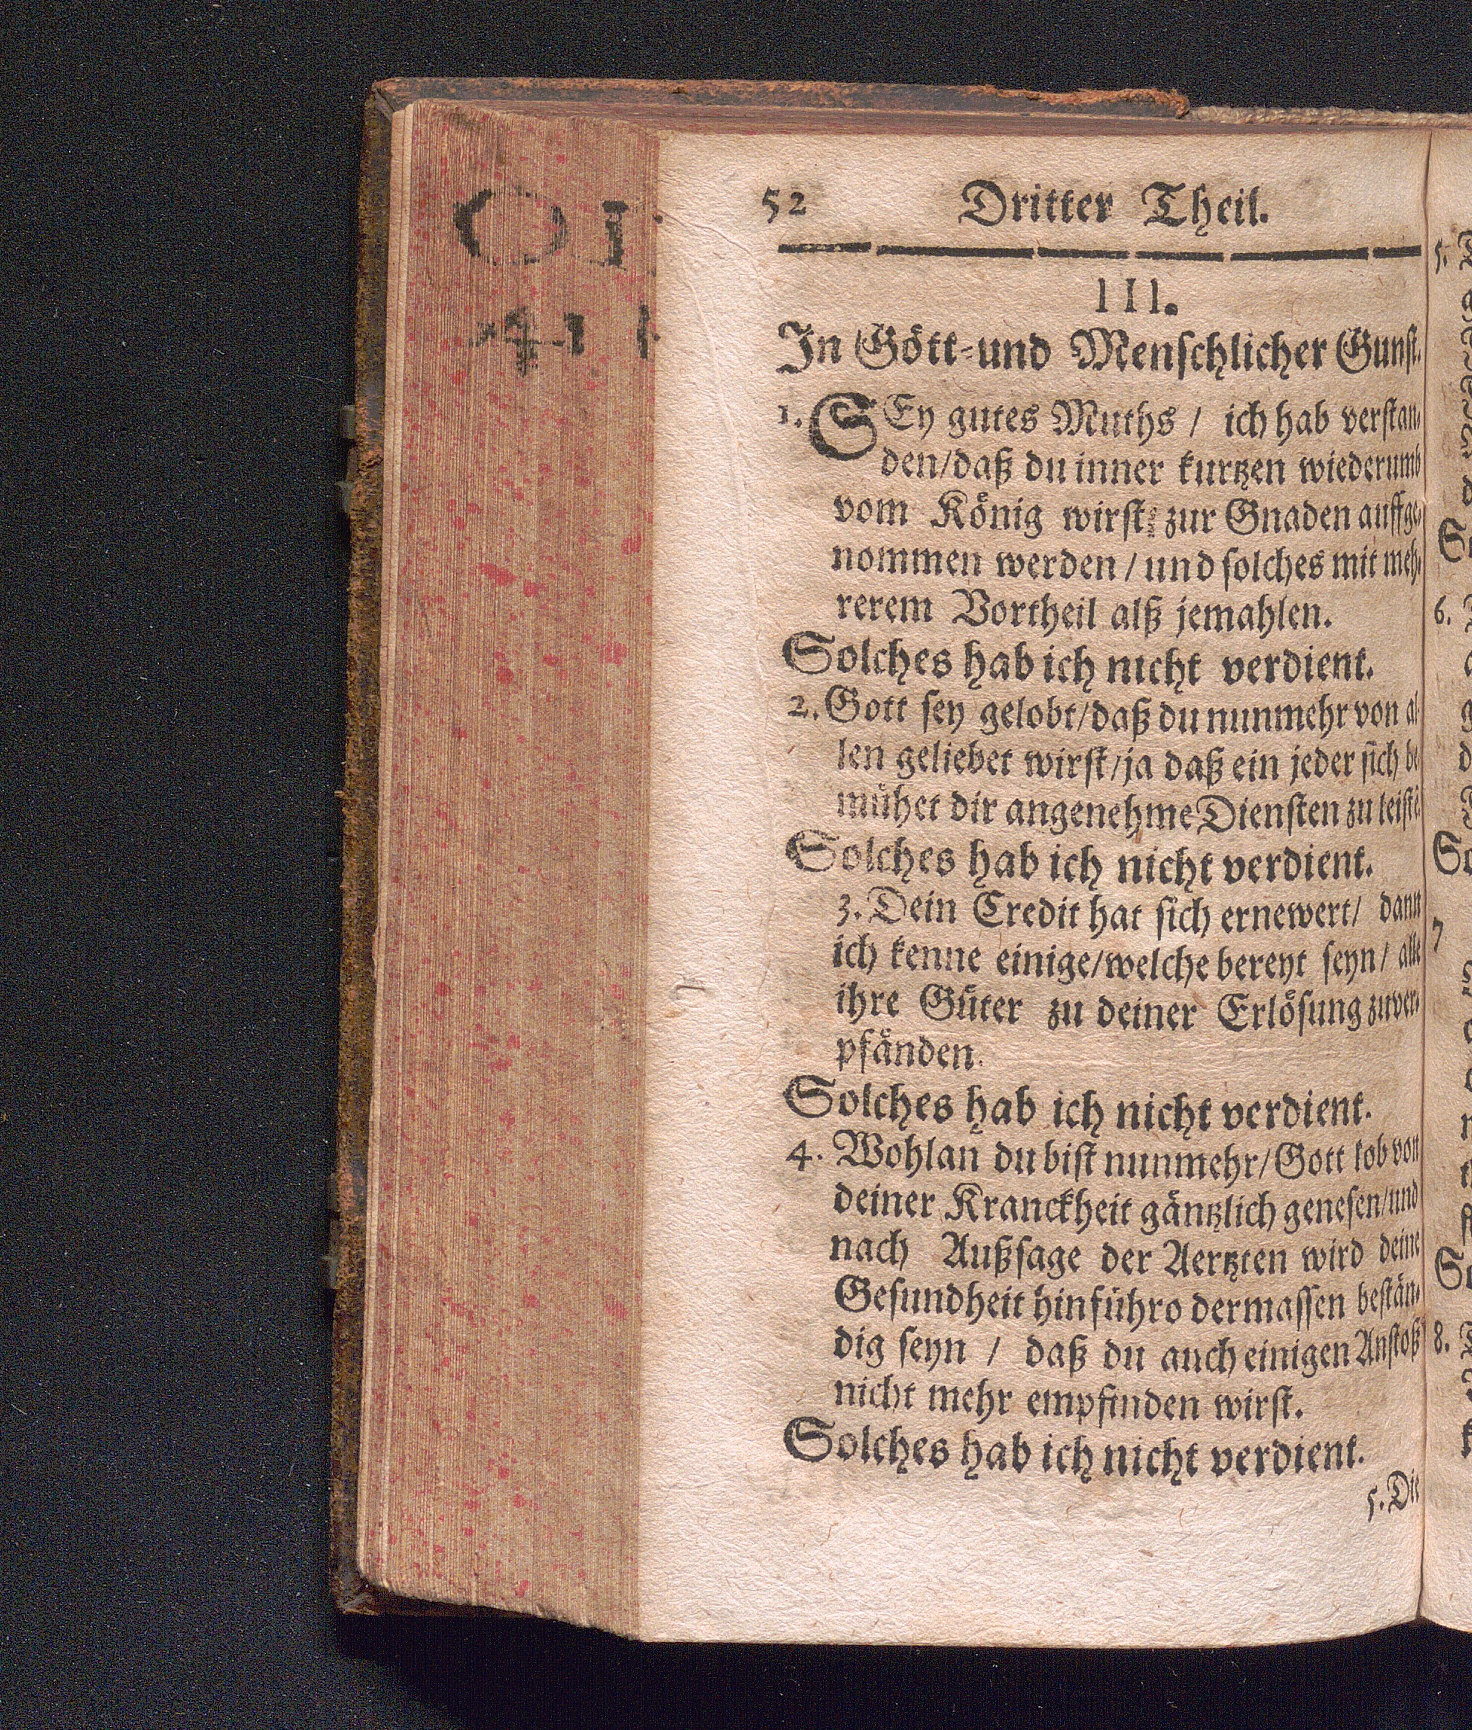 52 Dritter Theil.
III.
In Gött-und Menschlicher Gunst.
1. SEy gutes Muths / ich hab verstan-
den/daß du inner kurtzen wiederumb
vom König wirst zur Gnaden auffge-
nommen werden / und solches mit meh-
rerem Vortheil alß jemahlen.
Solches hab ich nicht verdient.
2. Gott sey gelobt/daß du nunmehr von al
len geliebet wirst/ja daß ein jeder sich be
mühet dir angenehme Diensten zu leistē.
Solches hab ich nicht verdient.
3. Dein Credit hat sich ernewert/ dann
ich kenne einige/welche bereyt seyn/ alle
ihre Güter zu deiner Erlösung zuver-
pfänden.
Solches hab ich nicht verdient.
4. Wohlan du bist nunmehr/Gott lob von
deiner Kranckheit gäntzlich genesen/und
nach Außsage der Aertzten wird deine
Gesundheit hinführo dermassen bestän-
dig seyn / daß du auch einigen Anstoß
nicht mehr empfinden wirst.
Solches hab ich nicht verdient.
5. Die
5.
6.
7
8.